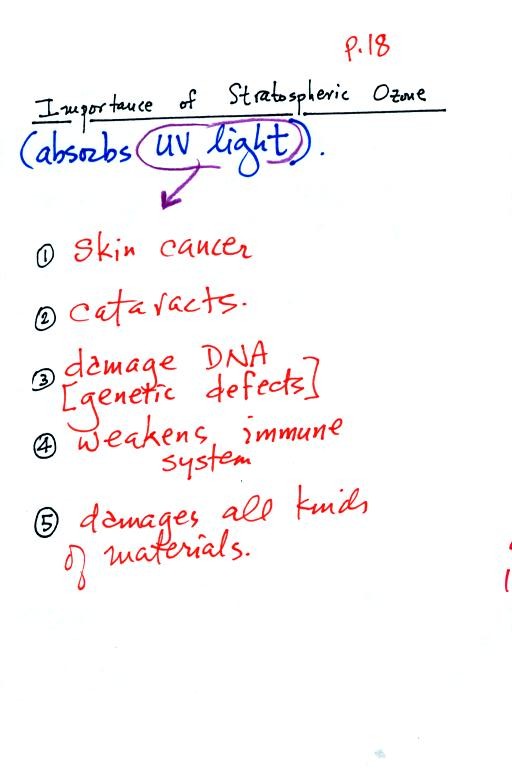 p.18
Importance of Stratospheric Ozone
(absorbs UV light).
① skin cancer
② cataracts.
③ damage DNA
[genetic defects]
④ weakens immune
system
⑤ damages all kinds
of materials.